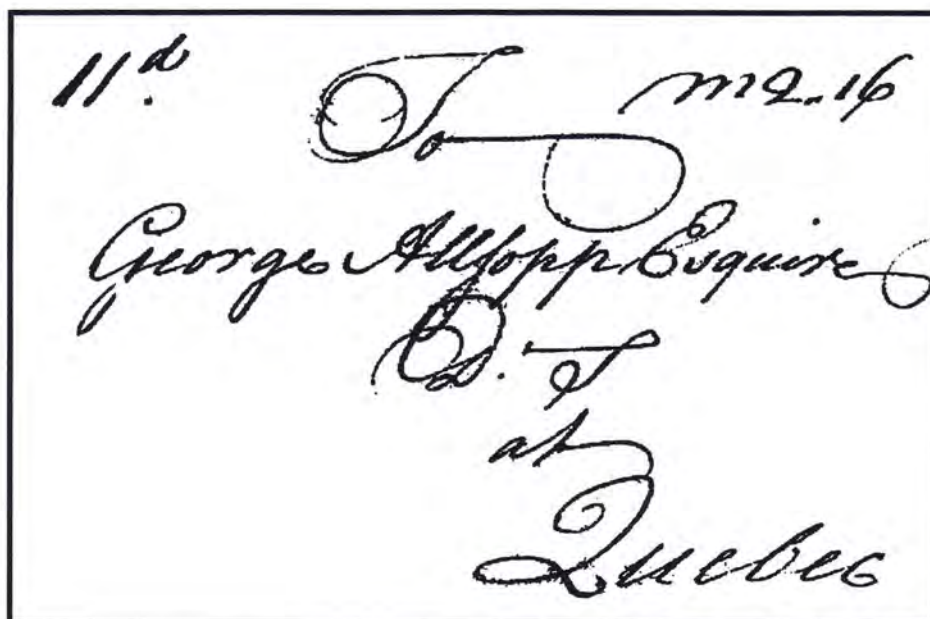 11d To m 2..16
George Allsopp Esquire
D. S
at
Quebec